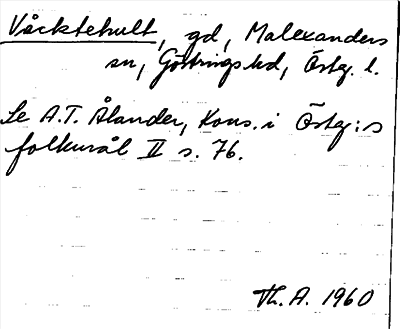 Våcktehult, gd, Malexanders
sn, Göstrings hd, Östg. l.
Se A.T. Ålander, Kons. i Östg:s
folkmål II s. 76.
Th. A. 1960